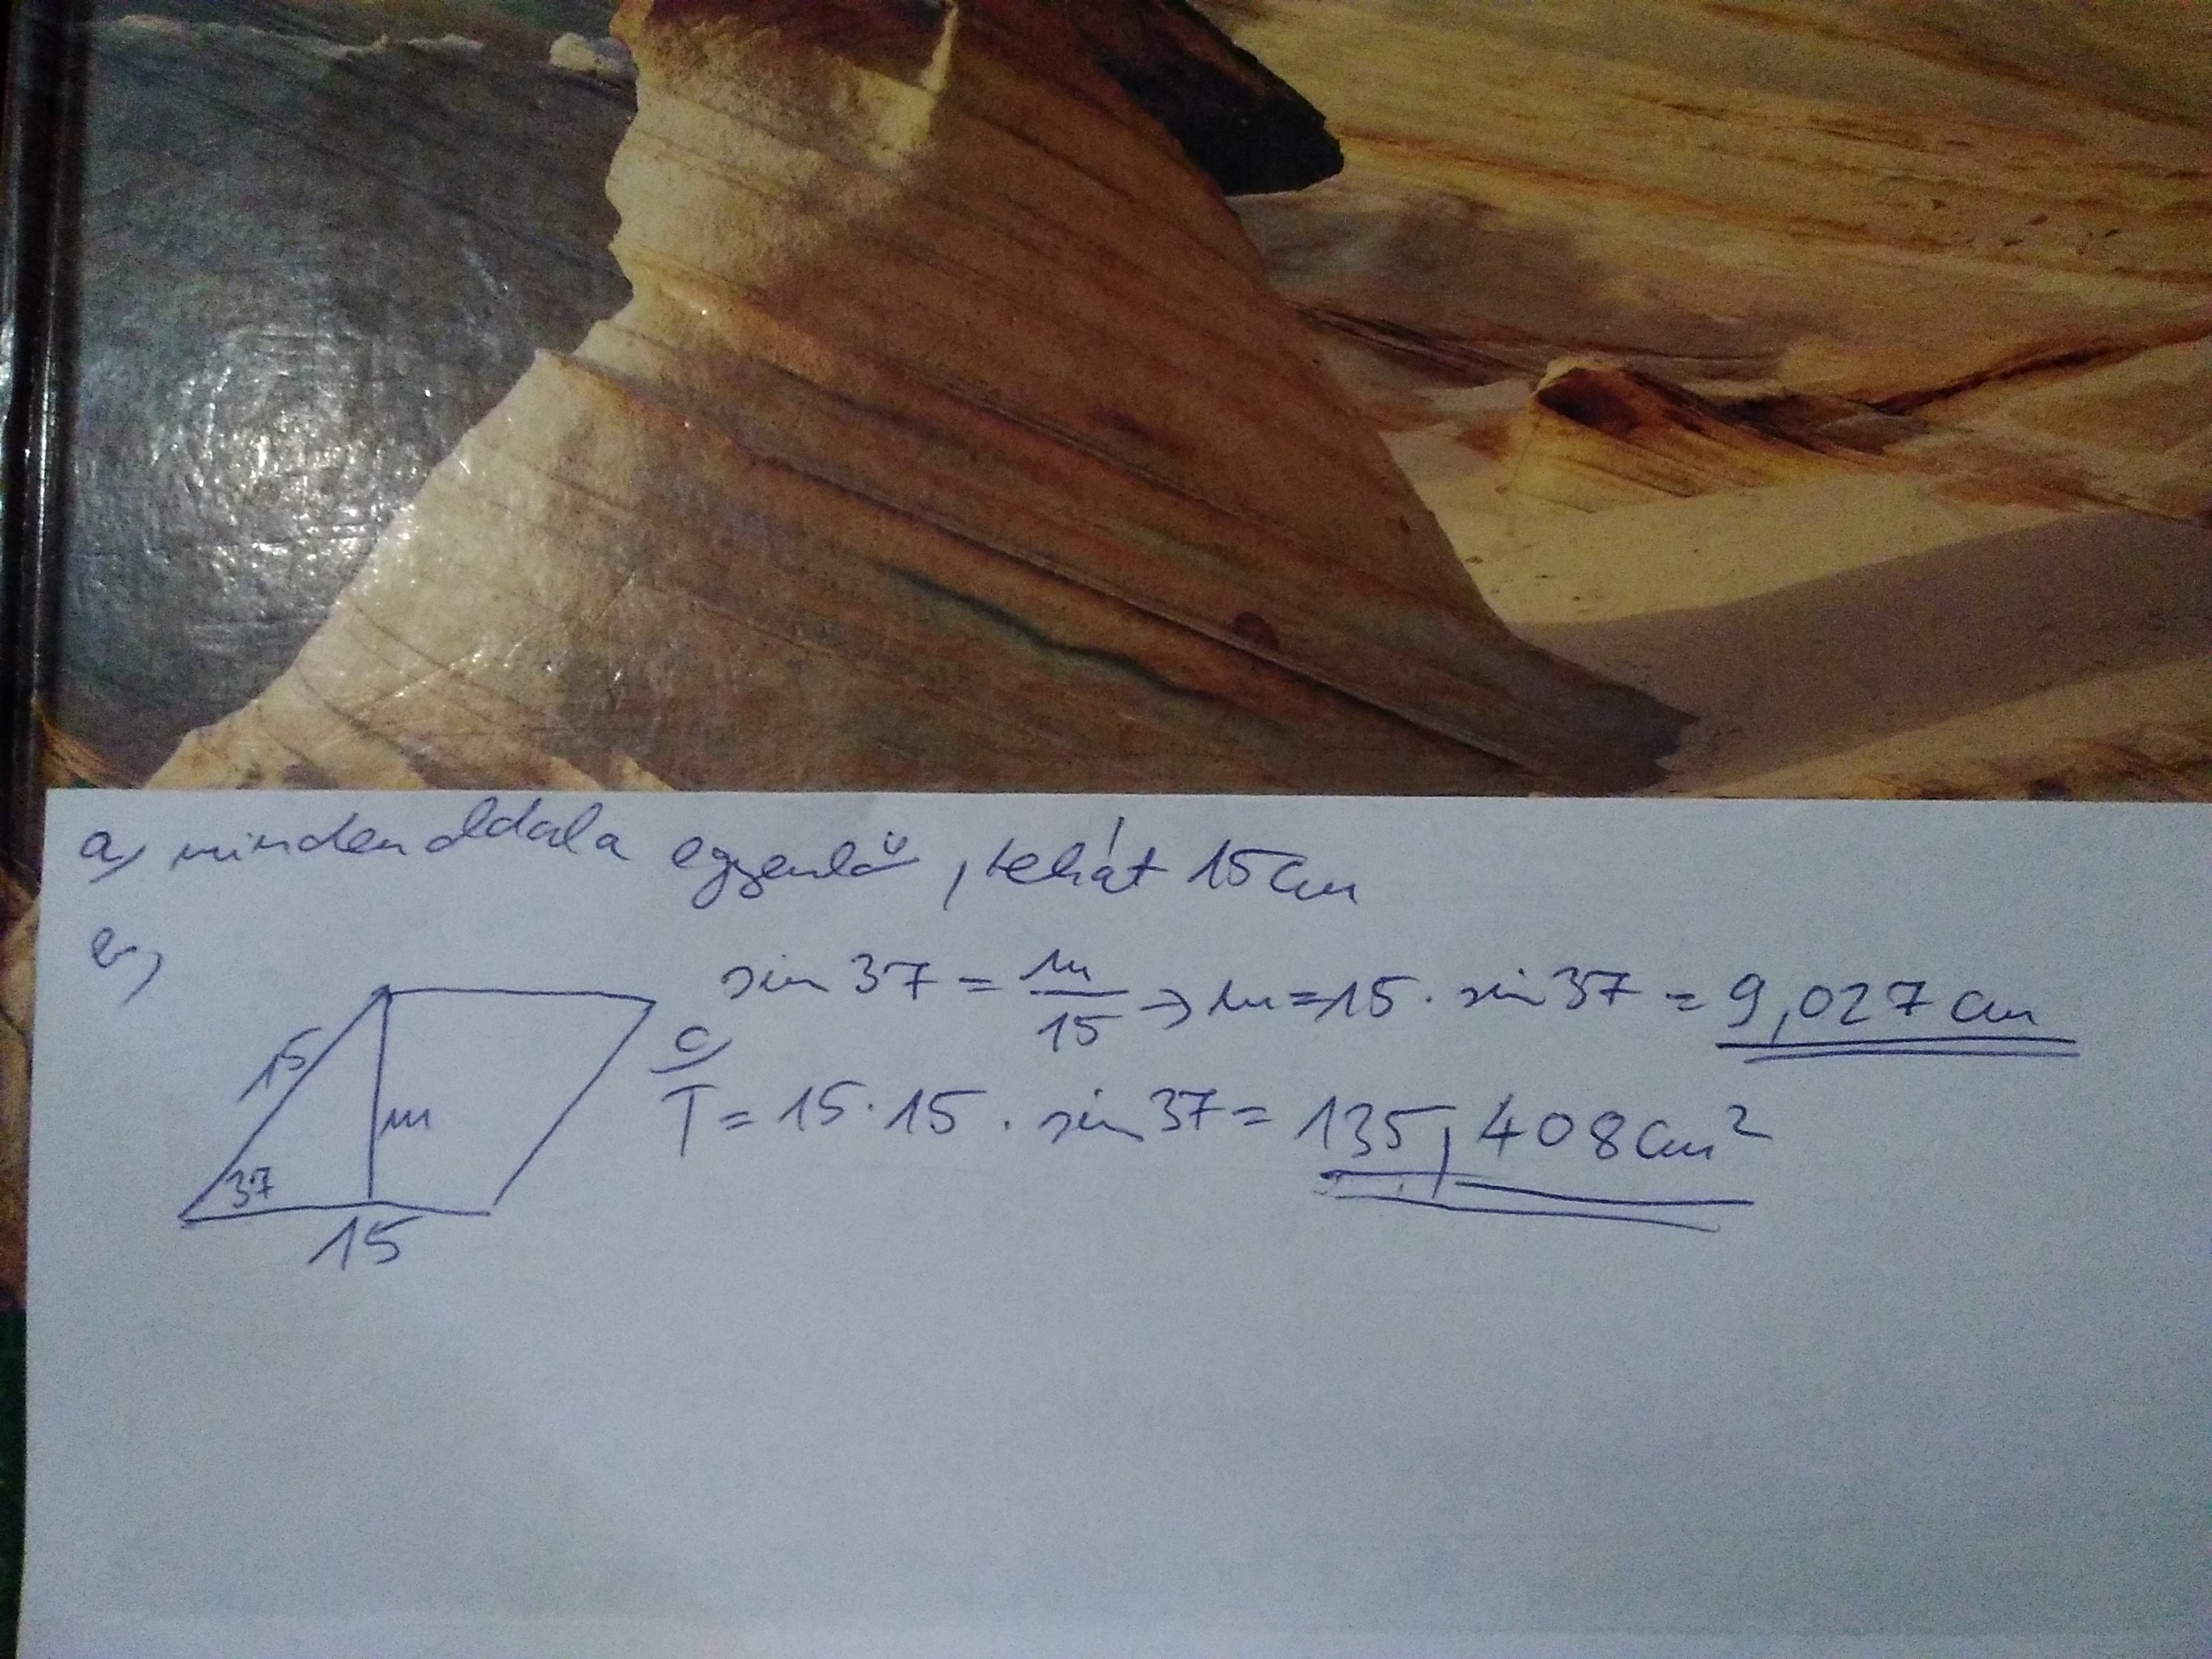 a, minden oldala egyenlő, tehát 15 cm
b,
sin 37 = m/15 → m = 15 · sin 37 = 9,027 cm
15
c,
m
T = 15 · 15 · sin 37 = 135,408 cm²
37
15